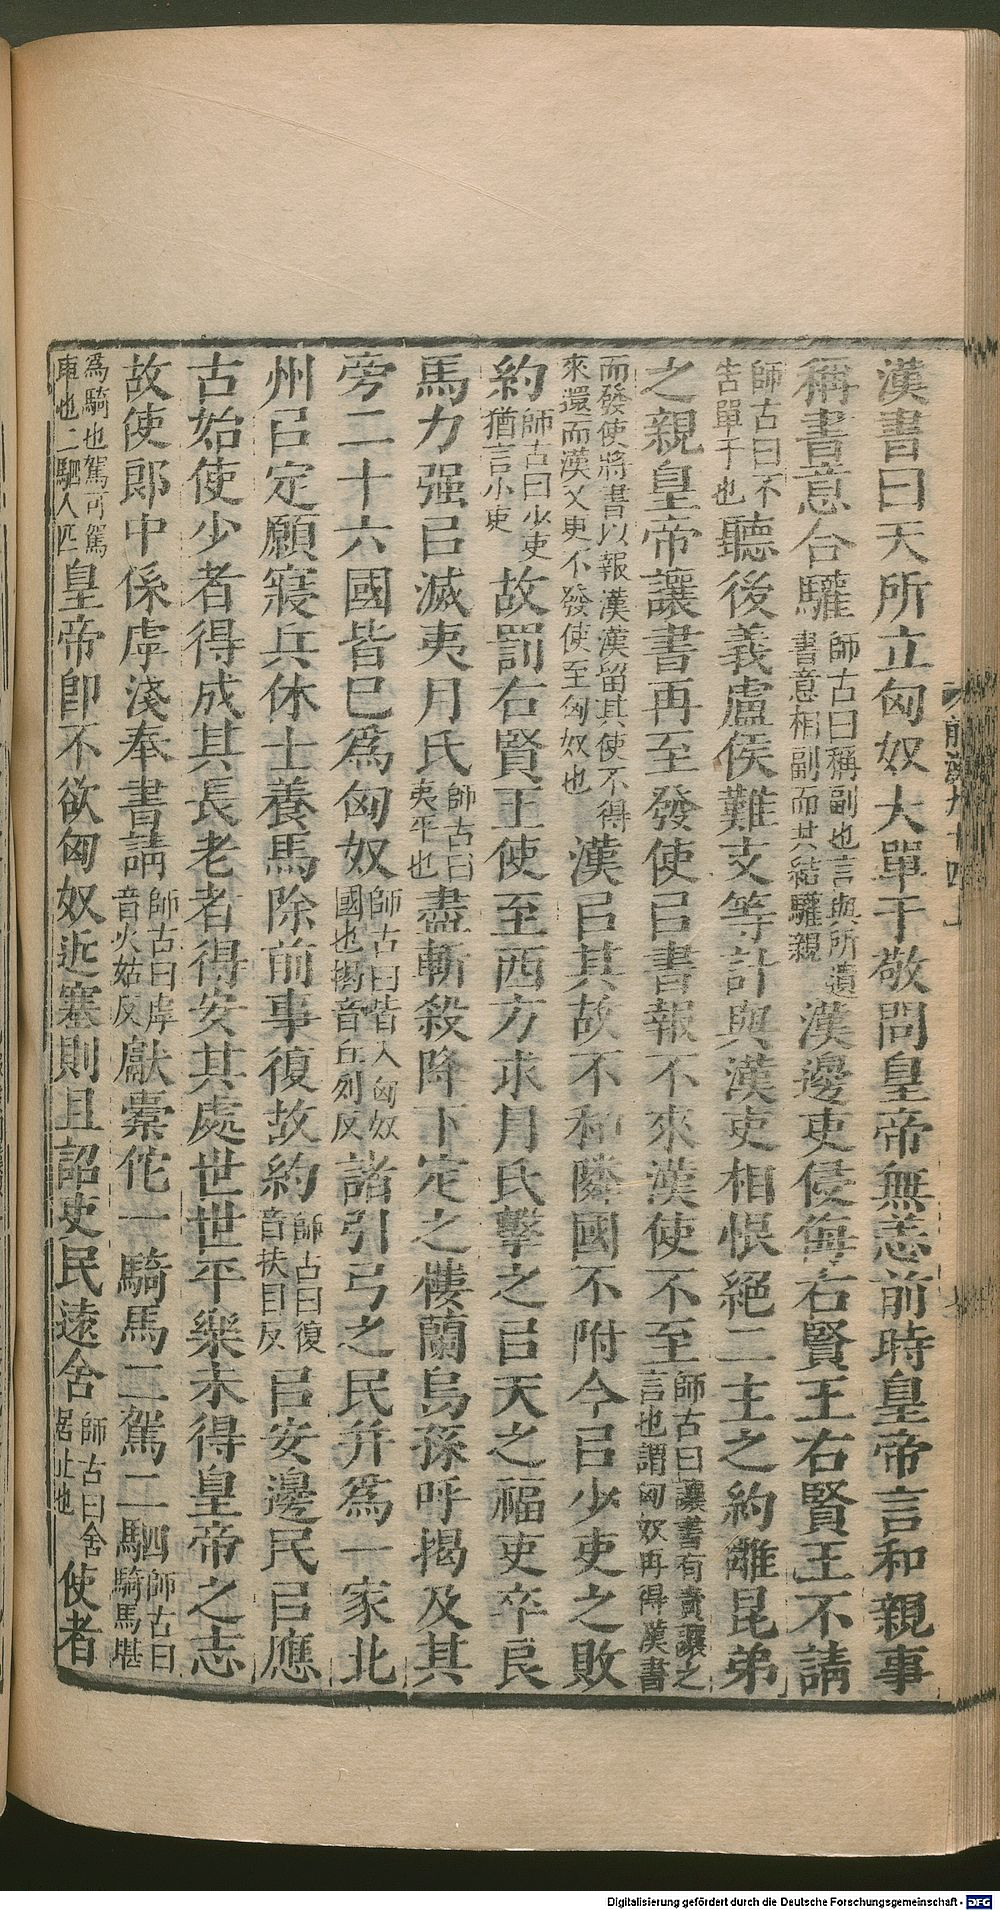 漢書曰天所立匈奴大單于敬問皇帝無恙前時皇帝言和親事
稱書意合驩師古曰稱副也言與所遺書意相副而共結驩親漢邊吏侵侮右賢王右賢王不請
師古曰不告單于也聽後義盧侯難支等計與漢吏相恨絕二主之約離昆弟
之親皇帝讓書再至發使㠯書報不來漢使不至師古曰讓書有責讓之言也謂匈奴再得漢書
而發使將書以報漢漢留其使不得來還而漢又更不發使至匈奴也漢㠯其故不和隣國不附今㠯少吏之敗
約師古曰少吏猶言小吏故罰右賢王使至西方求月氏擊之㠯天之福吏卒良
馬力强㠯滅夷月氏師古曰夷平也盡斬殺降下定之樓蘭烏孫呼揭及其
旁二十六國皆已爲匈奴師古曰皆入匈奴國也揭音丘列反諸引弓之民并爲一家北
州㠯定願寢兵休士養馬除前事復故約師古曰復音扶目反㠯安邊民㠯應
古始使少者得成其長老者得安其處世世平樂未得皇帝之志
故使郎中係虖淺奉書請師古曰虖音火姑反獻橐佗一騎馬二駕二駟師古曰騎馬堪
爲騎也駕可駕車也二駟八匹皇帝即不欲匈奴近塞則且詔吏民遠舍師古曰舍居止也使者
前漢九十四上
Digitalisierung gefördert durch die Deutsche Forschungsgemeinschaft - DFG